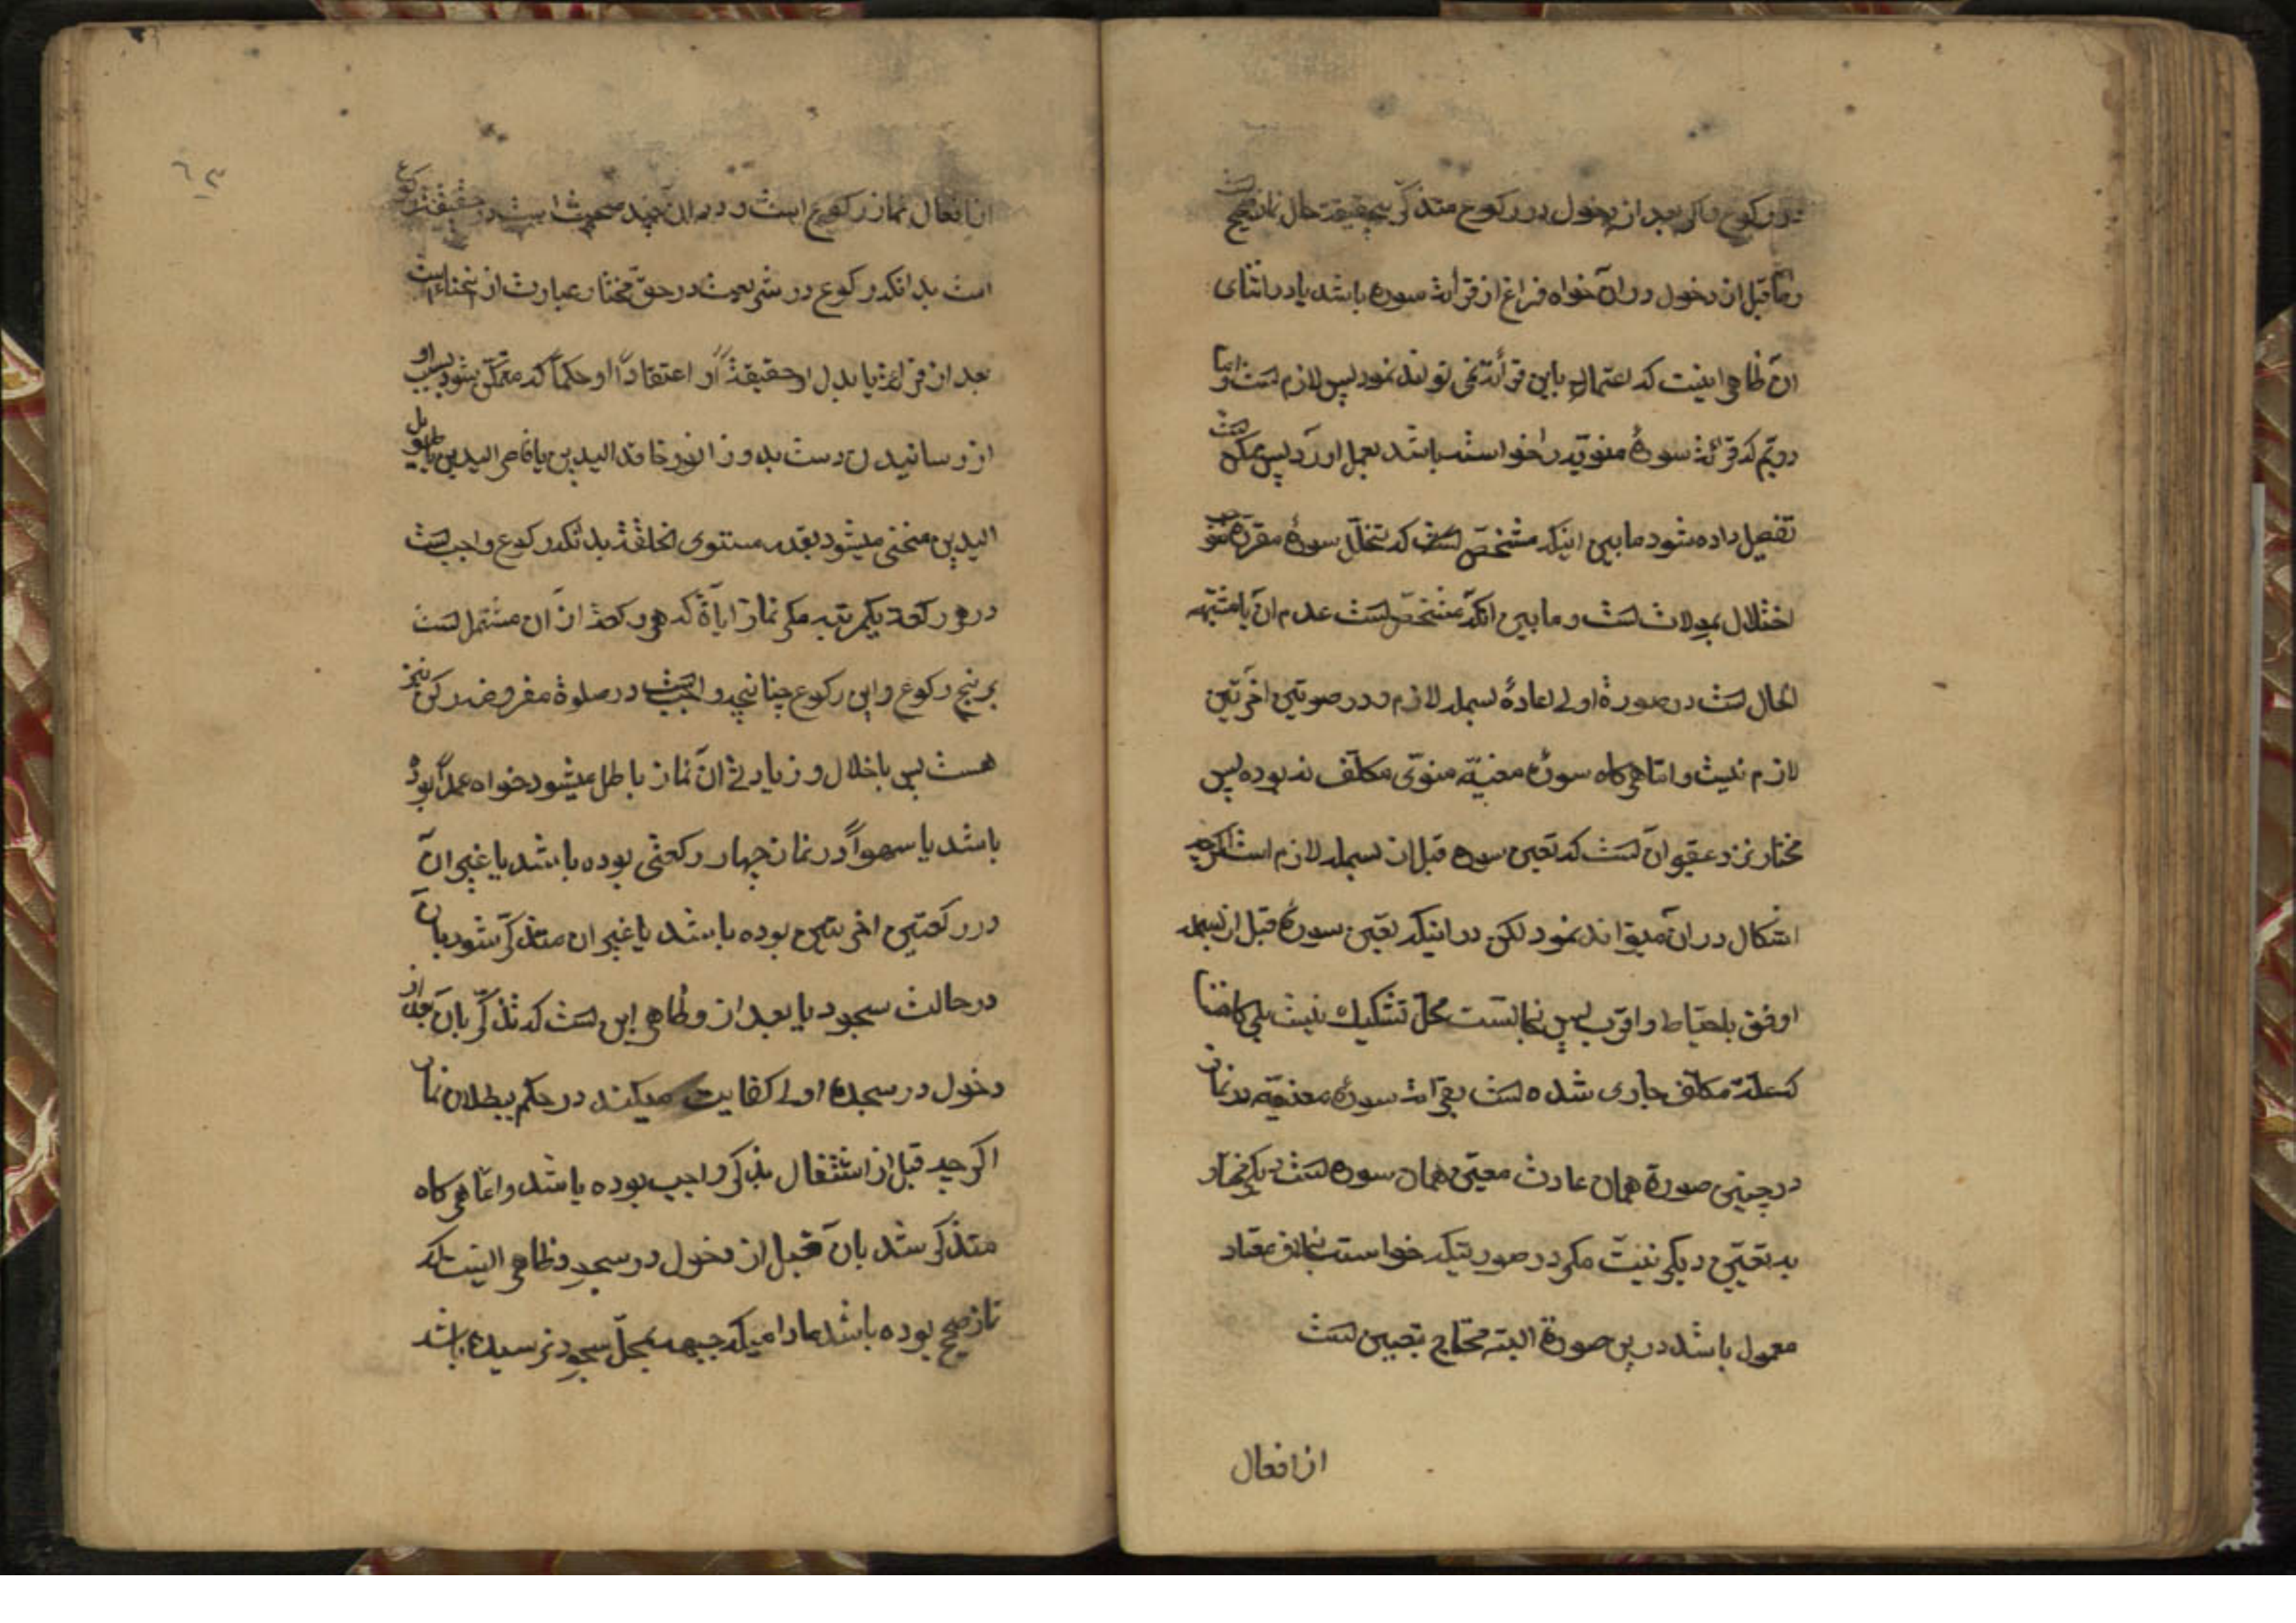 در رکوع و اگر بعد از دخول در رکوع متذکر حقیقت حال نماز صحیح است
و اما قبل از دخول در آن خواه فراغ از قرائت سوره باشد یا در اثنای
آن ظاهر اینست که اعتماد باین قرائت نمی تواند نمود پس لازم است و اما
دویّم که قرائت سورهٔ منویّه را خواسته باشد بعمل آورد پس ممکن است
تفصیل داده شود مابین اینکه مشخّص است که تخلّل سورهٔ مقرّه
اختلال بموالات است و مابین آنکه مشخّص است عدم آن یا مشتبه
الحال است در صورة اولی اعادهٔ بسمله لازم و در صورتین اخرتین
لازم نیست و اما هرگاه سورهٔ معنیّه منوّی مکلّف نه بوده پس
مختار نزد عقیر آن است که تعیین سوره قبل از بسمله لازم است اگرچه
اشکال در آن میتواند نمود لکن در اینکه تعیین سوره قبل از بسمله
اوفق باحتیاط و اقرب بسی نجاتست محلّ تشکیک نیست بلی گاه
که عادة مکلّف جاری شده است بقرائت سورهٔ معنیّه در نماز
در چنین صورة همان عادت معیّن همان سوره است دیگر
به تعیین دیگر نیست مگر در صورتیکه خواسته بخلاف معتاد
معمول باشد درین صورة البته محتاج بتعیین است
از افعال
٦٣
از افعال نماز رکوع است و در آن چند مبحث است در حقیقت رکوع
است بدانکه رکوع در شریعت در حقّ مختار عبارت از انحناء است
بعد از قرائت یا بدل او حقیقةً او اعتقاداً او حکماً که متمکّن شود بسبب او
از رسانیدن دست بدو زانو و فاقد الیدین یا قاصر الیدین یا طویل
الیدین منحنی میشود بقدر مستوی الخلقة بدانکه رکوع واجب است
در هر رکعت یکمرتبه مگر نماز آیاة که هر رکعت از آن مشتمل است
بر پنج رکوع و این رکوع چنانچه واجب است در صلوة مفروضه رکن نیز
هست پس باخلال و زیادتی آن نماز باطل میشود خواه عمداً بوده
باشد یا سهواً در نماز چهار رکعتی بوده باشد یا غیر آن
در رکعتین اخرتین بوده باشد یا غیر آن متذکّر شود بآن
در حالت سجود یا بعد از و ظاهر این است که تذکّر بآن بعد از
دخول در سجدهٔ اولی کفایت میکند در حکم ببطلان نماز
اگرچه قبل از اشتغال بذکر واجب بوده باشد و اما هرگاه
متذکر شد بآن قبل از دخول در سجده و ظاهر اینست که
نماز صحیح بوده باشد مادامیکه جبهه بمحلّ سجود نرسیده باشد